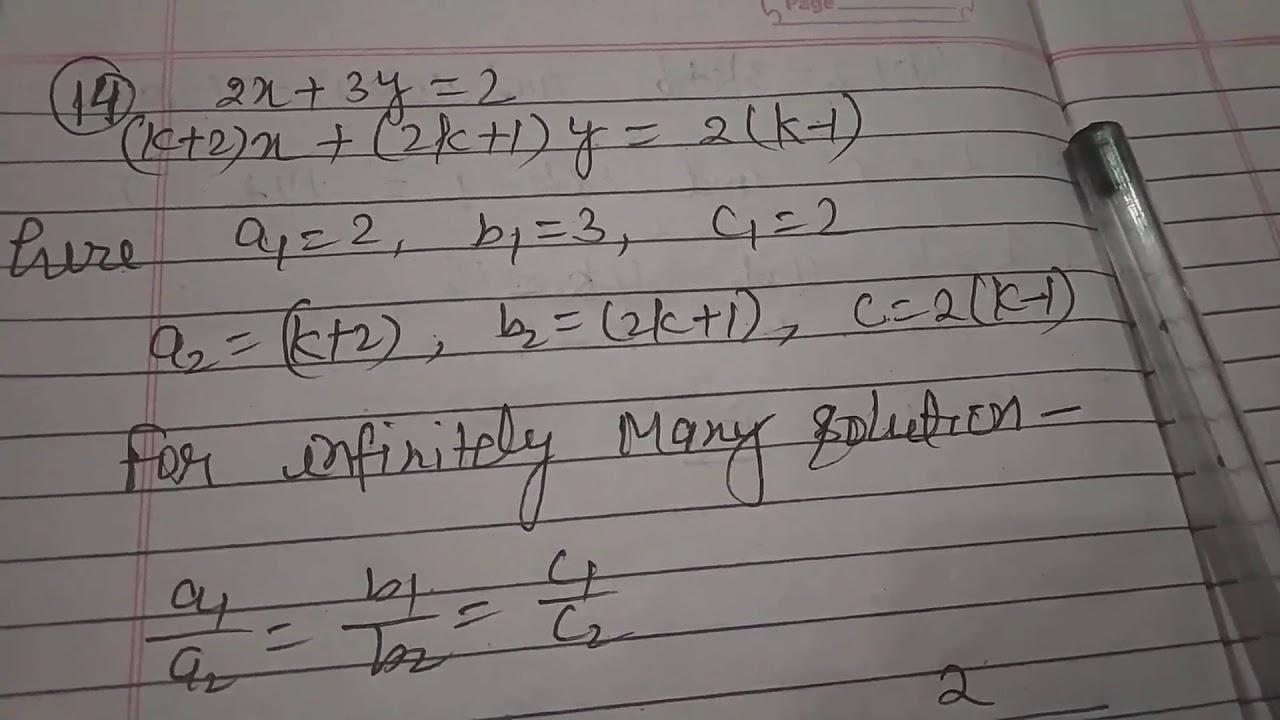 Page
(14) 2x + 3y = 2
(k+2)x + (2k+1)y = 2(k-1)
here a₁ = 2, b₁ = 3, c₁ = 2
a₂ = (k+2), b₂ = (2k+1), c = 2(k-1)
For infinitely Many solution -
a₁/a₂ = b₁/b₂ = c₁/c₂
2